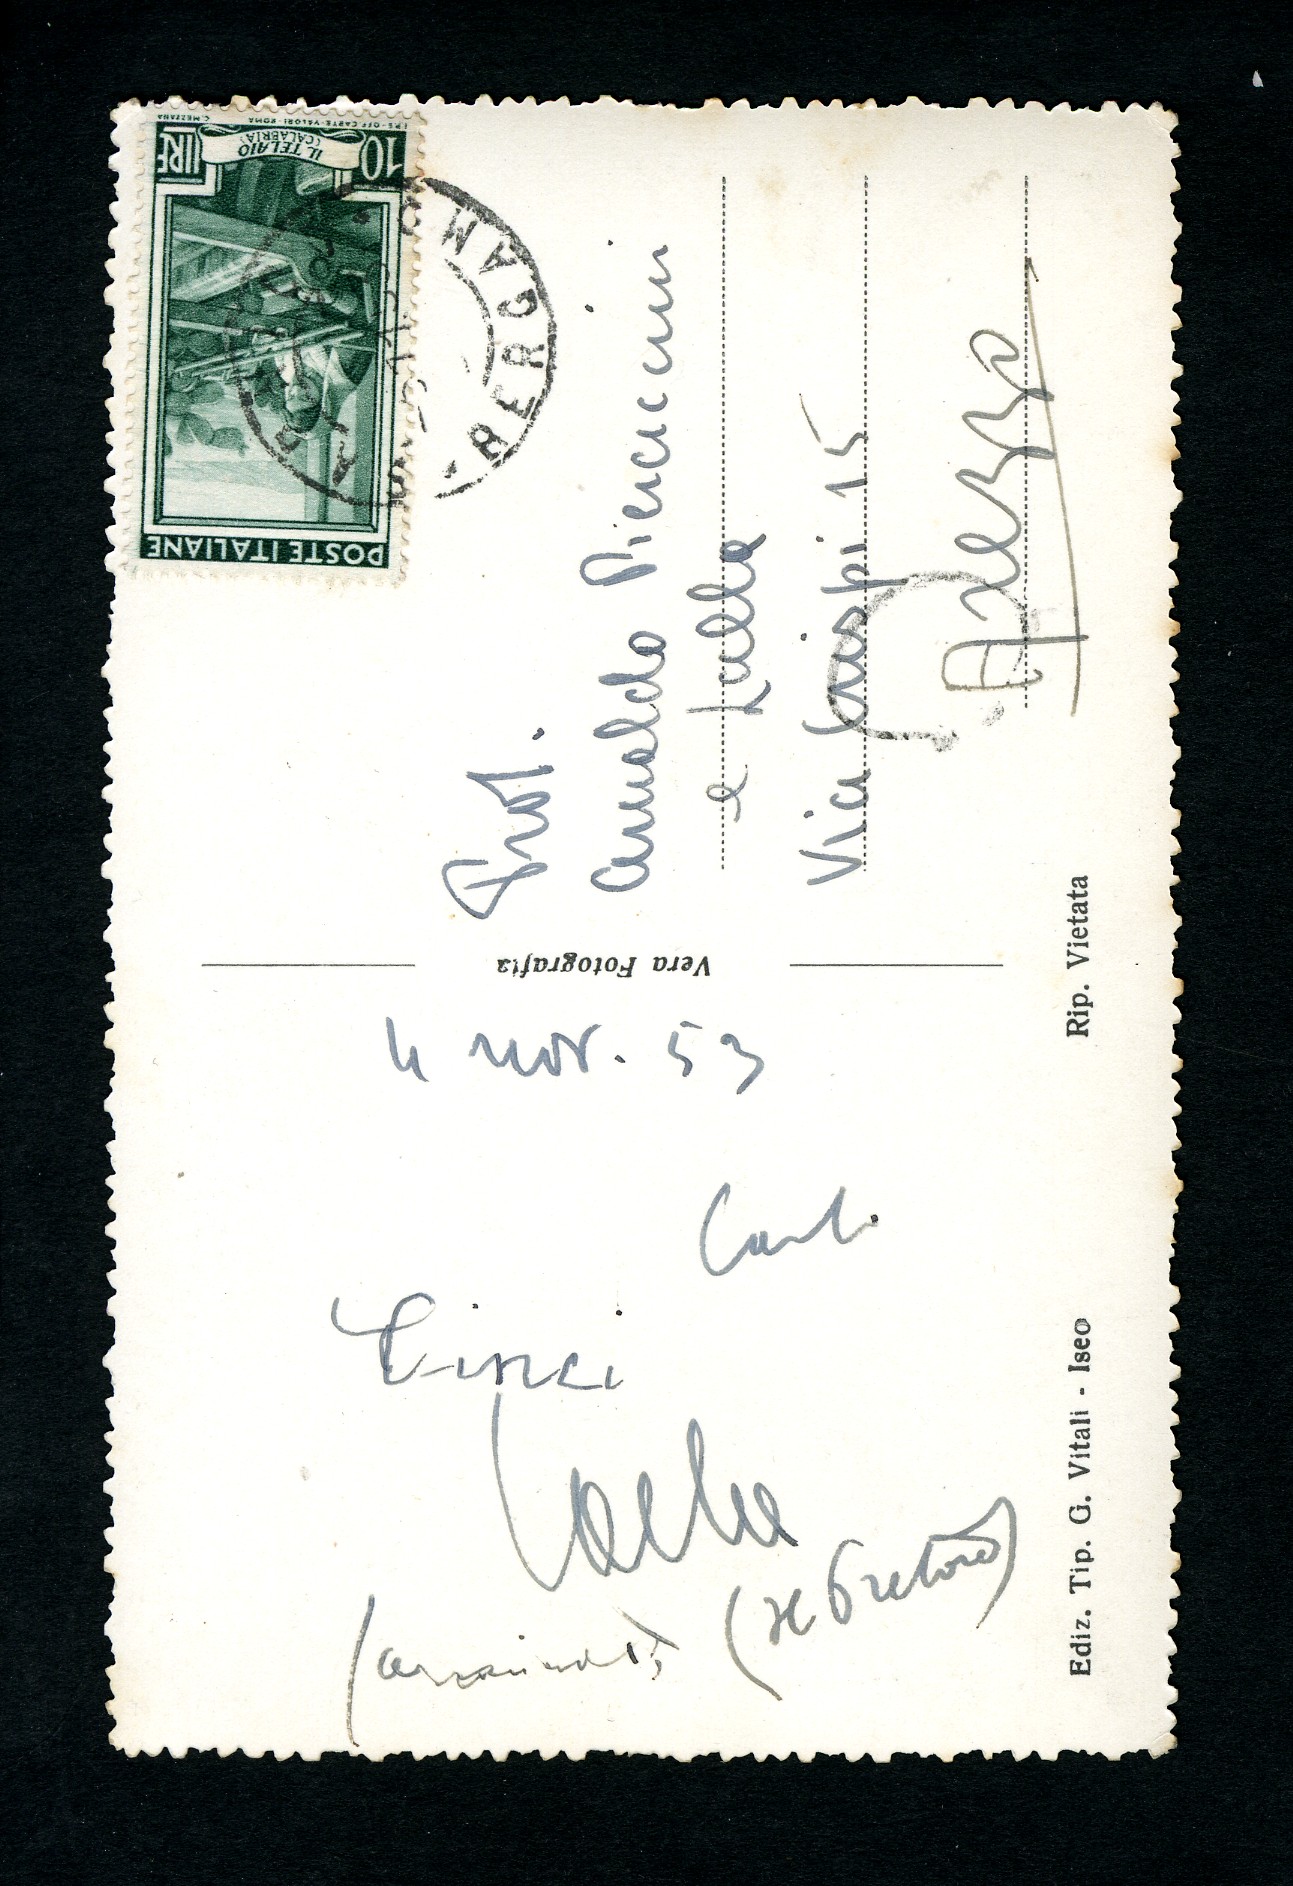 4 nov. 53
Cinci
Carlo
(Il Pretore)
Ediz. Tip. G. Vitali - Iseo
Rip. Vietata
Vera Fotografia
POSTE ITALIANE
LIRE 10
IL TELAIO
(CALABRIA)
I.P.S.-OFF. CARTE-VALORI-ROMA
C. MEZZANA
BERGAMO
Prof.
Arnaldo Pieraccini
e Lalla
Via Crispi 15
Arezzo